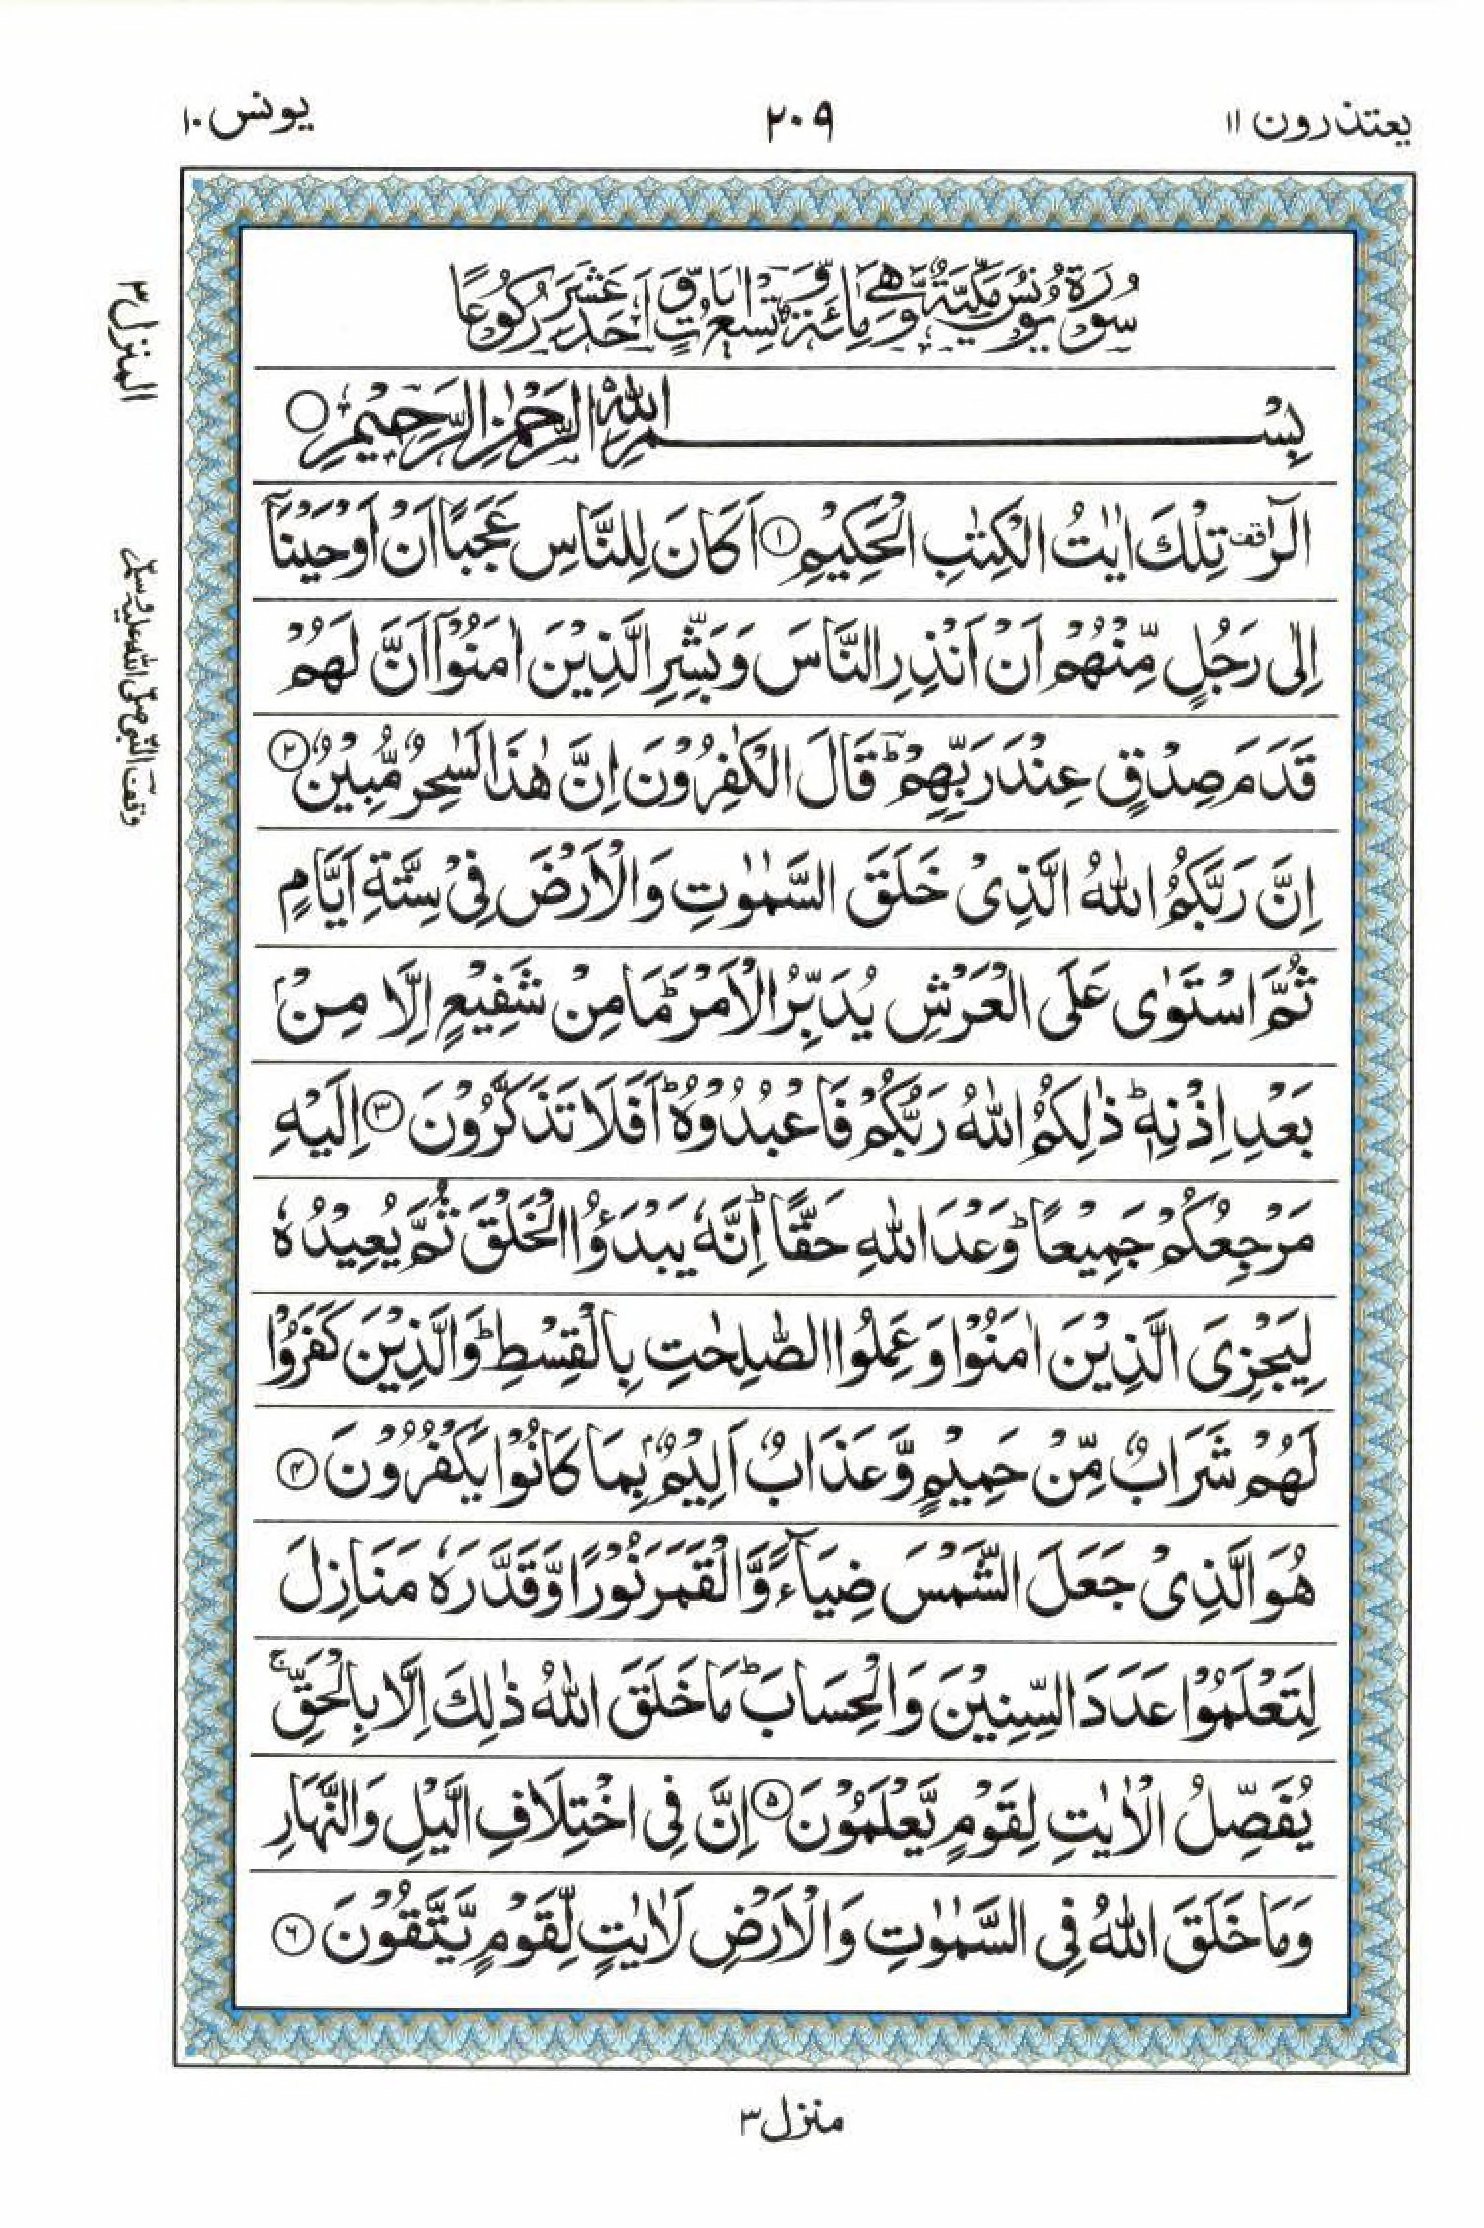 یعتذرون ۱۱
۲۰۹
یونس ۱۰
سُوْرَةُ يُوْنُسَ مَكِّيَّةٌ وَّهِيَ مِائَةٌ وَّتِسْعُ اٰيَاتٍ وَّاَحَدَ عَشَرَ رُكُوْعًا
بِسْمِ اللّٰهِ الرَّحْمٰنِ الرَّحِيْمِ ○
الٓرٰ قف تِلْكَ اٰيٰتُ الْكِتٰبِ الْحَكِيْمِ ۱ اَكَانَ لِلنَّاسِ عَجَبًا اَنْ اَوْحَيْنَاۤ
اِلٰى رَجُلٍ مِّنْهُمْ اَنْ اَنْذِرِ النَّاسَ وَبَشِّرِ الَّذِيْنَ اٰمَنُوْۤا اَنَّ لَهُمْ
قَدَمَ صِدْقٍ عِنْدَ رَبِّهِمْ ؕ قَالَ الْكٰفِرُوْنَ اِنَّ هٰذَا لَسٰحِرٌ مُّبِيْنٌ ۲
اِنَّ رَبَّكُمُ اللّٰهُ الَّذِيْ خَلَقَ السَّمٰوٰتِ وَالْاَرْضَ فِيْ سِتَّةِ اَيَّامٍ
ثُمَّ اسْتَوٰى عَلَى الْعَرْشِ يُدَبِّرُ الْاَمْرَ ؕ مَا مِنْ شَفِيْعٍ اِلَّا مِنْۢ
بَعْدِ اِذْنِهٖ ؕ ذٰلِكُمُ اللّٰهُ رَبُّكُمْ فَاعْبُدُوْهُ ؕ اَفَلَا تَذَكَّرُوْنَ ۳ اِلَيْهِ
مَرْجِعُكُمْ جَمِيْعًا ؕ وَعْدَ اللّٰهِ حَقًّا ؕ اِنَّهٗ يَبْدَؤُا الْخَلْقَ ثُمَّ يُعِيْدُهٗ
لِيَجْزِيَ الَّذِيْنَ اٰمَنُوْا وَعَمِلُوا الصّٰلِحٰتِ بِالْقِسْطِ ؕ وَالَّذِيْنَ كَفَرُوْا
لَهُمْ شَرَابٌ مِّنْ حَمِيْمٍ وَّعَذَابٌ اَلِيْمٌۢ بِمَا كَانُوْا يَكْفُرُوْنَ ۴
هُوَ الَّذِيْ جَعَلَ الشَّمْسَ ضِيَآءً وَّالْقَمَرَ نُوْرًا وَّقَدَّرَهٗ مَنَازِلَ
لِتَعْلَمُوْا عَدَدَ السِّنِيْنَ وَالْحِسَابَ ؕ مَا خَلَقَ اللّٰهُ ذٰلِكَ اِلَّا بِالْحَقِّ ۚ
يُفَصِّلُ الْاٰيٰتِ لِقَوْمٍ يَّعْلَمُوْنَ ۵ اِنَّ فِي اخْتِلَافِ الَّيْلِ وَالنَّهَارِ
وَمَا خَلَقَ اللّٰهُ فِي السَّمٰوٰتِ وَالْاَرْضِ لَاٰيٰتٍ لِّقَوْمٍ يَّتَّقُوْنَ ۶
المنزل ۳
وقف النبی صلی اللہ علیہ وسلم
منزل ۳